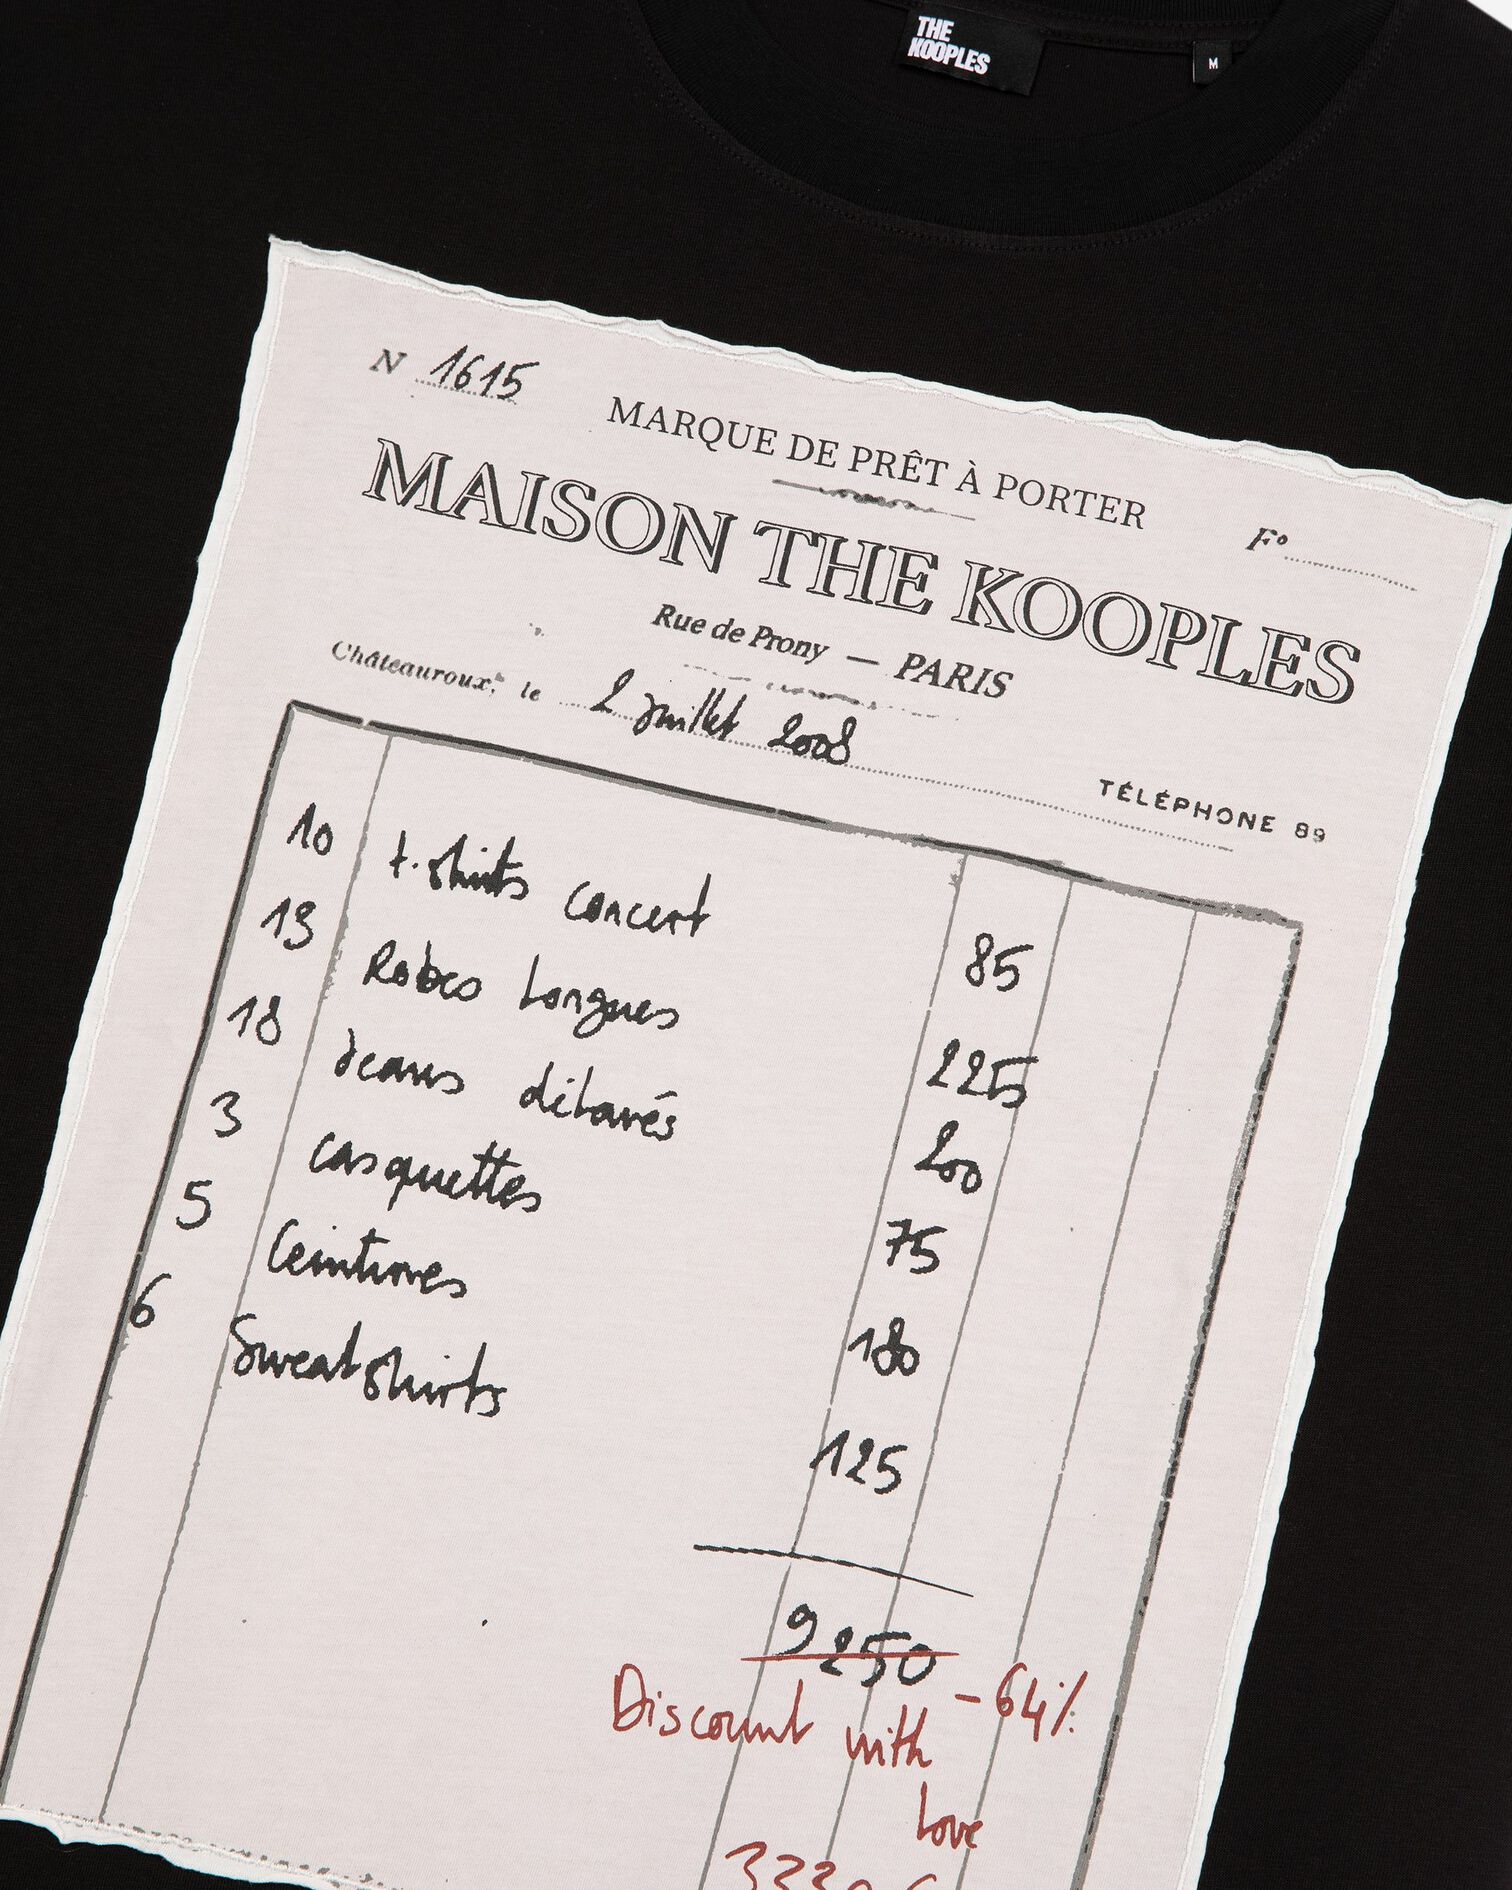 THE
KOOPLES
M
N 1615
MARQUE DE PRÊT À PORTER
F°
MAISON THE KOOPLES
Rue de Prony — PARIS
Châteauroux, le 2 juillet 2008
TÉLÉPHONE 89
10 t-shirts concert 85
13 Robes longues 225
18 Jeans délavés 200
3 casquettes 75
5 Ceintures 180
6 Sweatshirts 125
9250 -64%
Discount with
love